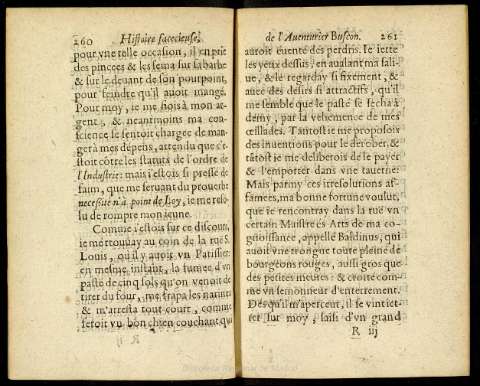 260 Histoire facecieuse,
pour vne telle occasion, il en prit
des pincees & les sema sur sa barbe
& sur le deuant de son pourpoint,
pour feindre qu'il auoit mangé.
Pour moy, ie me fiois à mon ar-
gent, & neantmoins ma con-
science se sentoit chargee de man-
ger à mes dépens, attendu que c'e-
stoit côtre les statuts de l'ordre de
l'Industrie: mais i'estois si pressé de
faim, que me seruant du prouerbe
necessité n'a point de Loy, ie me reso-
lu de rompre mon ieune.
Comme i'estois sur ce discours,
ie me trouuay au coin de la rue S.
Louis, où il y auoit vn Patissier:
en mesme instant, la fumee d'vn
pasté de cinq sols qu'on venoit de
tirer du four, me frapa les narines
& m'arresta tout court, comme
feroit vn bon chien couchant qui
de l'Auenturier Buscon. 261
auroit euenté des perdris. Ie iette
les yeux dessus, en auallant ma sali-
ue, & le regarday si fixement, &
auec des desirs si attractifs, qu'il
me semble que le pasté se secha à
demy, par la vehemence de mes
œillades. Tantost ie me proposois
des inuentions pour le dérober, &
tâtost ie me deliberois de le payer
& l'emporter dans vne tauerne.
Mais parmy ces irresolutions af-
famees, ma bonne fortune voulut,
que ie rencontray dans la rue vn
certain Maistre és Arts de ma co-
gnoissance, appellé Baldinus, qui
auoit vne trongne toute pleine de
bourgeons rouges, aussi gros que
des petites meures: & crotté com-
me vn semonneur d'enterrement.
Dés qu'il m'aperceut, il se vint iet-
ter sur moy, saisi d'vn grand
R iij